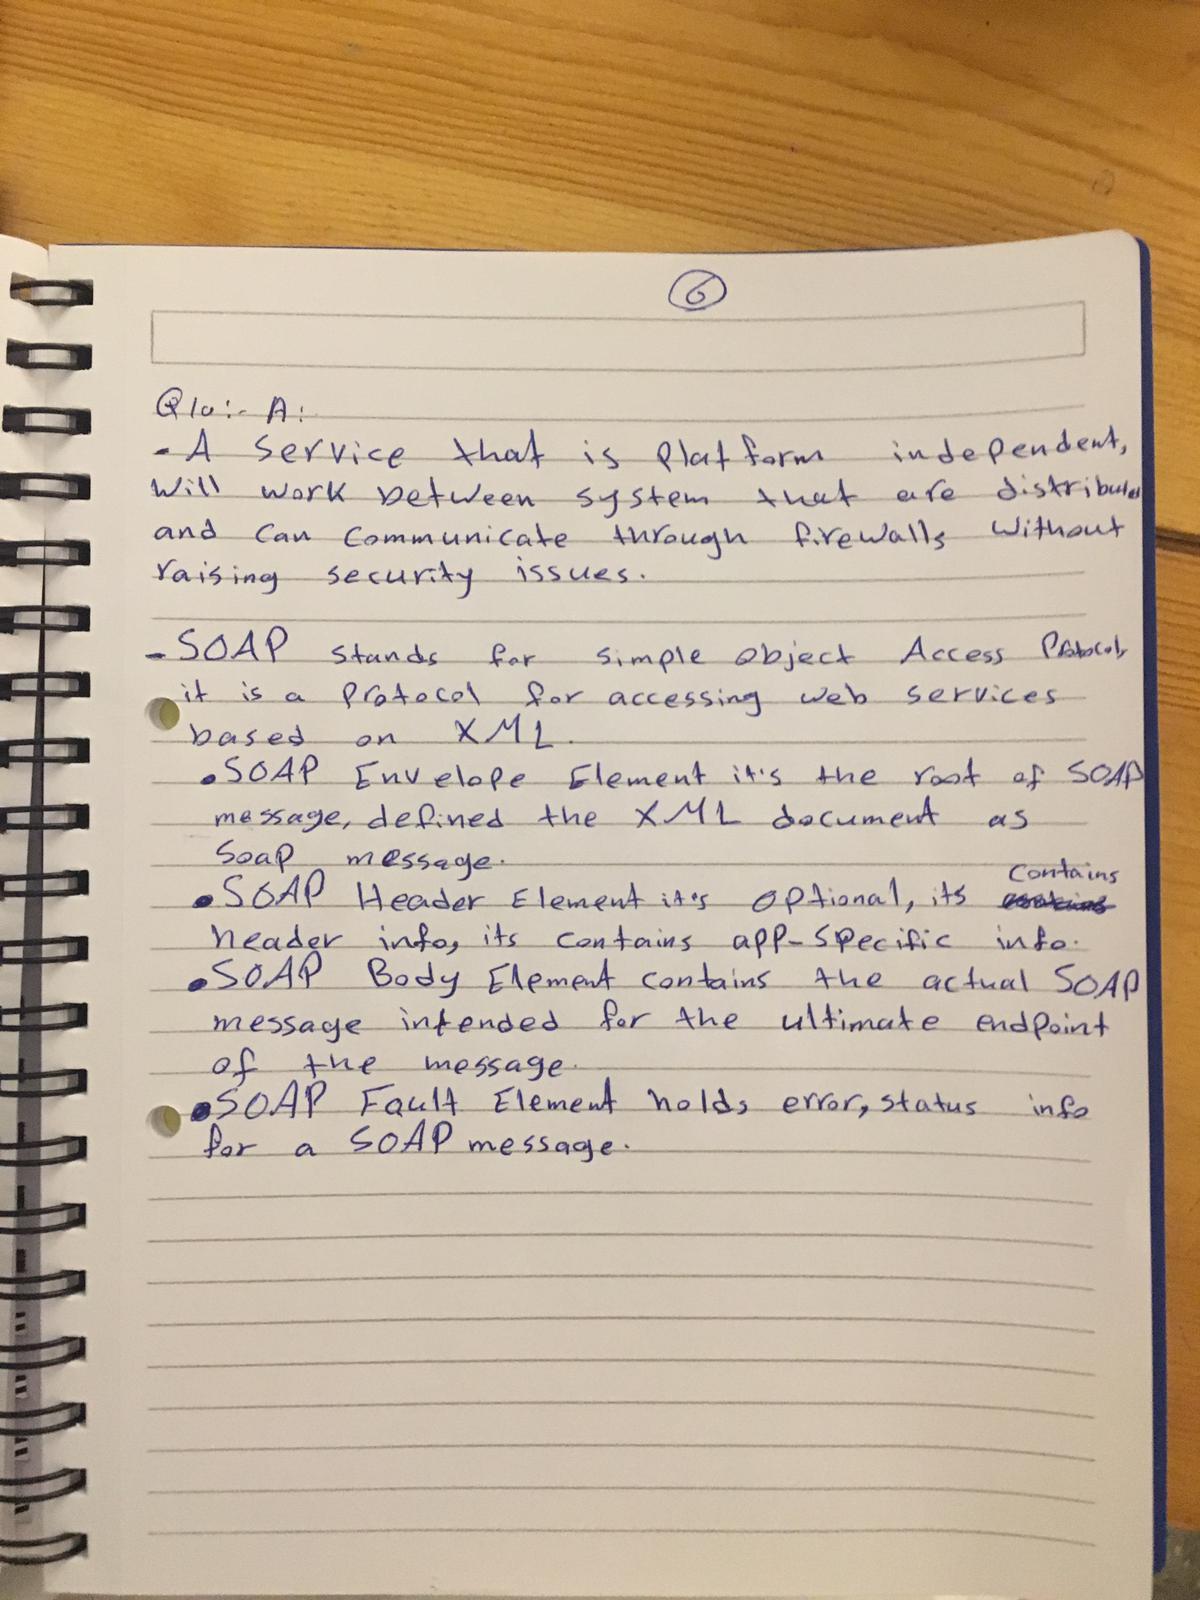 6
Q10:- A:
- A service that is Platform independent,
will work between system that are distributed
and can communicate through firewalls without
raising security issues.
- SOAP stands for simple object Access Protocol,
it is a Protocol for accessing web services
based on XML.
• SOAP Envelope Element it's the root of SOAP
message, defined the XML document as
Soap message.
contains
• SOAP Header Element it's optional, its
header info, its contains app-specific info.
• SOAP Body Element contains the actual SOAP
message intended for the ultimate endpoint
of the message.
• SOAP Fault Element holds error, status info
for a SOAP message.